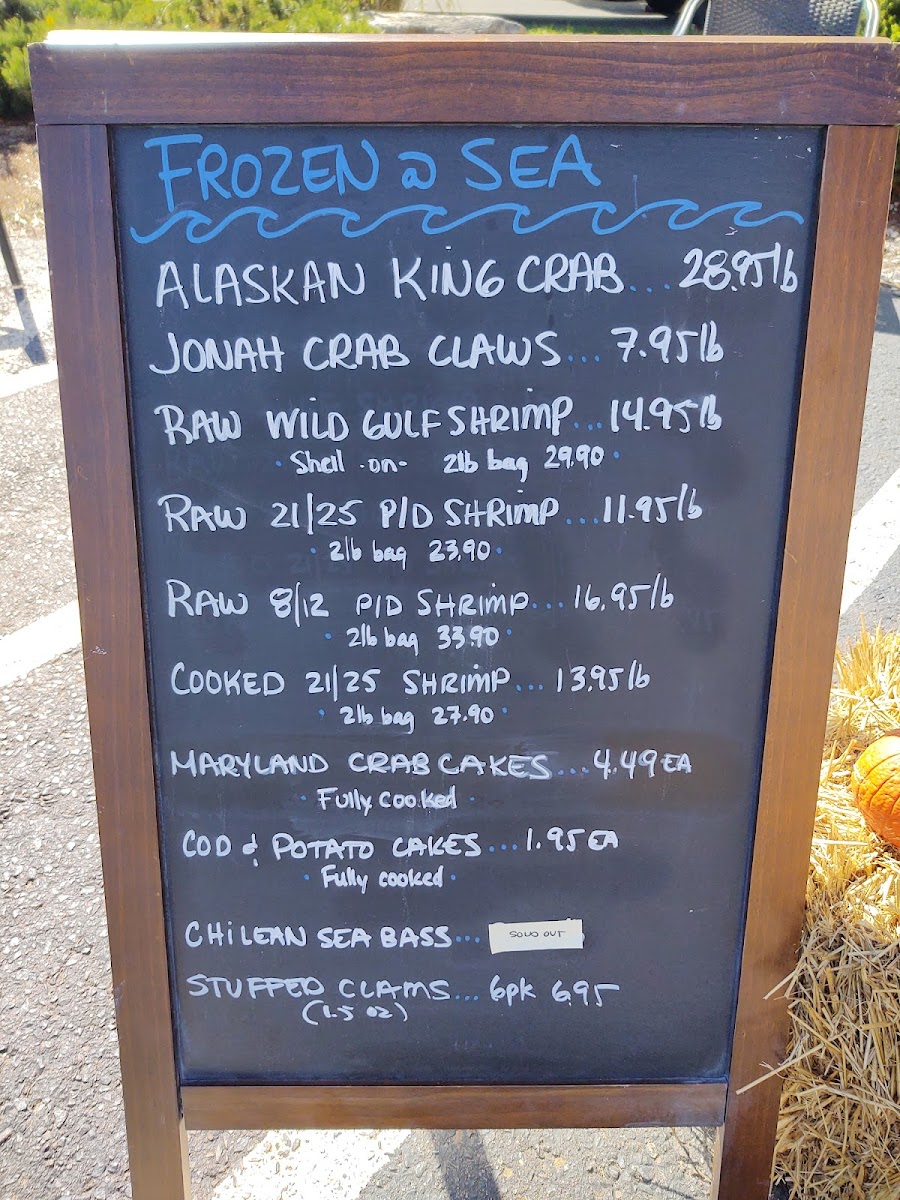 FROZEN @ SEA
ALASKAN KING CRAB... 28.95/lb
JONAH CRAB CLAWS... 7.95/lb
RAW WILD GULF SHRIMP... 14.95/lb
• Shell -on- 2lb bag 29.90 •
RAW 21/25 P/D SHRIMP... 11.95/lb
• 2lb bag 23.90 •
RAW 8/12 P/D SHRIMP... 16.95/lb
• 2lb bag 33.90 •
COOKED 21/25 SHRIMP... 13.95/lb
• 2lb bag 27.90 •
MARYLAND CRAB CAKES... 4.49 EA
• Fully cooked •
COD & POTATO CAKES... 1.95 EA
• Fully cooked •
CHILEAN SEA BASS... SOLD OUT
STUFFED CLAMS... 6pk 6.95
(1.5 oz)